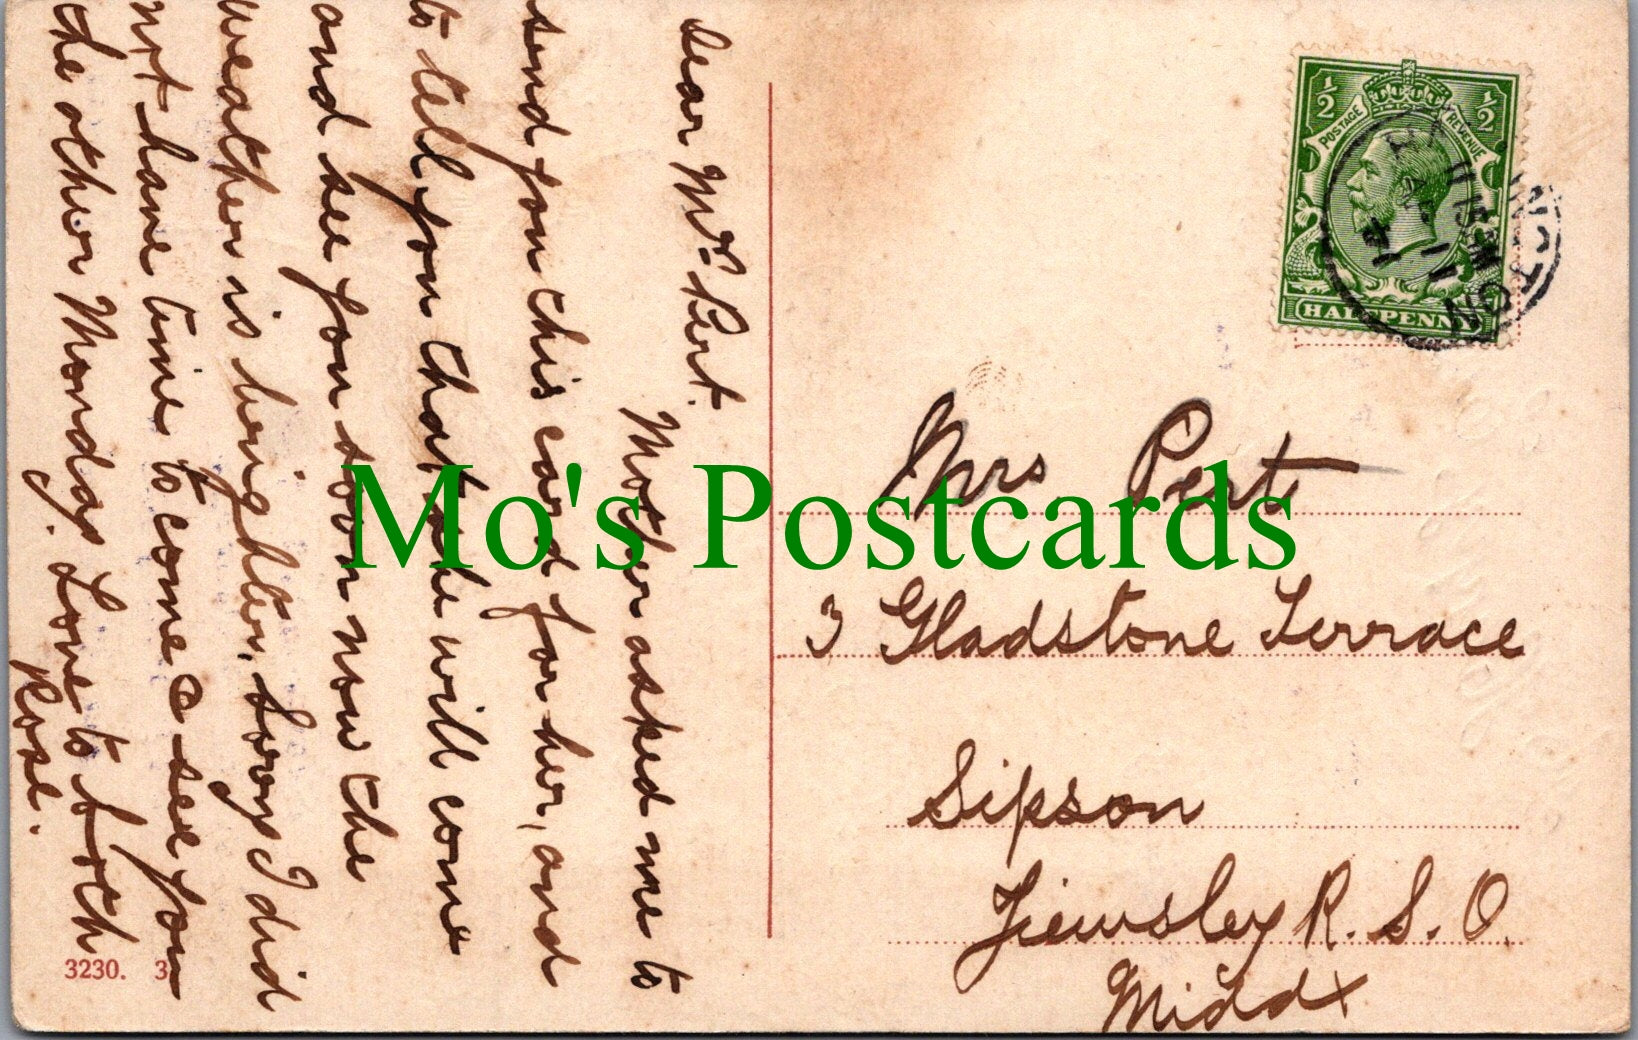 Dear Mrs Pert.
Mother asked me to
send you this card for her, and
to tell you that she will come
and see you soon now the
weather is brighter. Sorry I did
not have time to come & see you
the other Monday. Love to both
Rose.
3230. 3
½ ½
POSTAGE REVENUE
HALFPENNY
Mrs Pert
3 Gladstone Terrace
Sipson
Yiewsley R.S.O.
Middx
Mo's Postcards